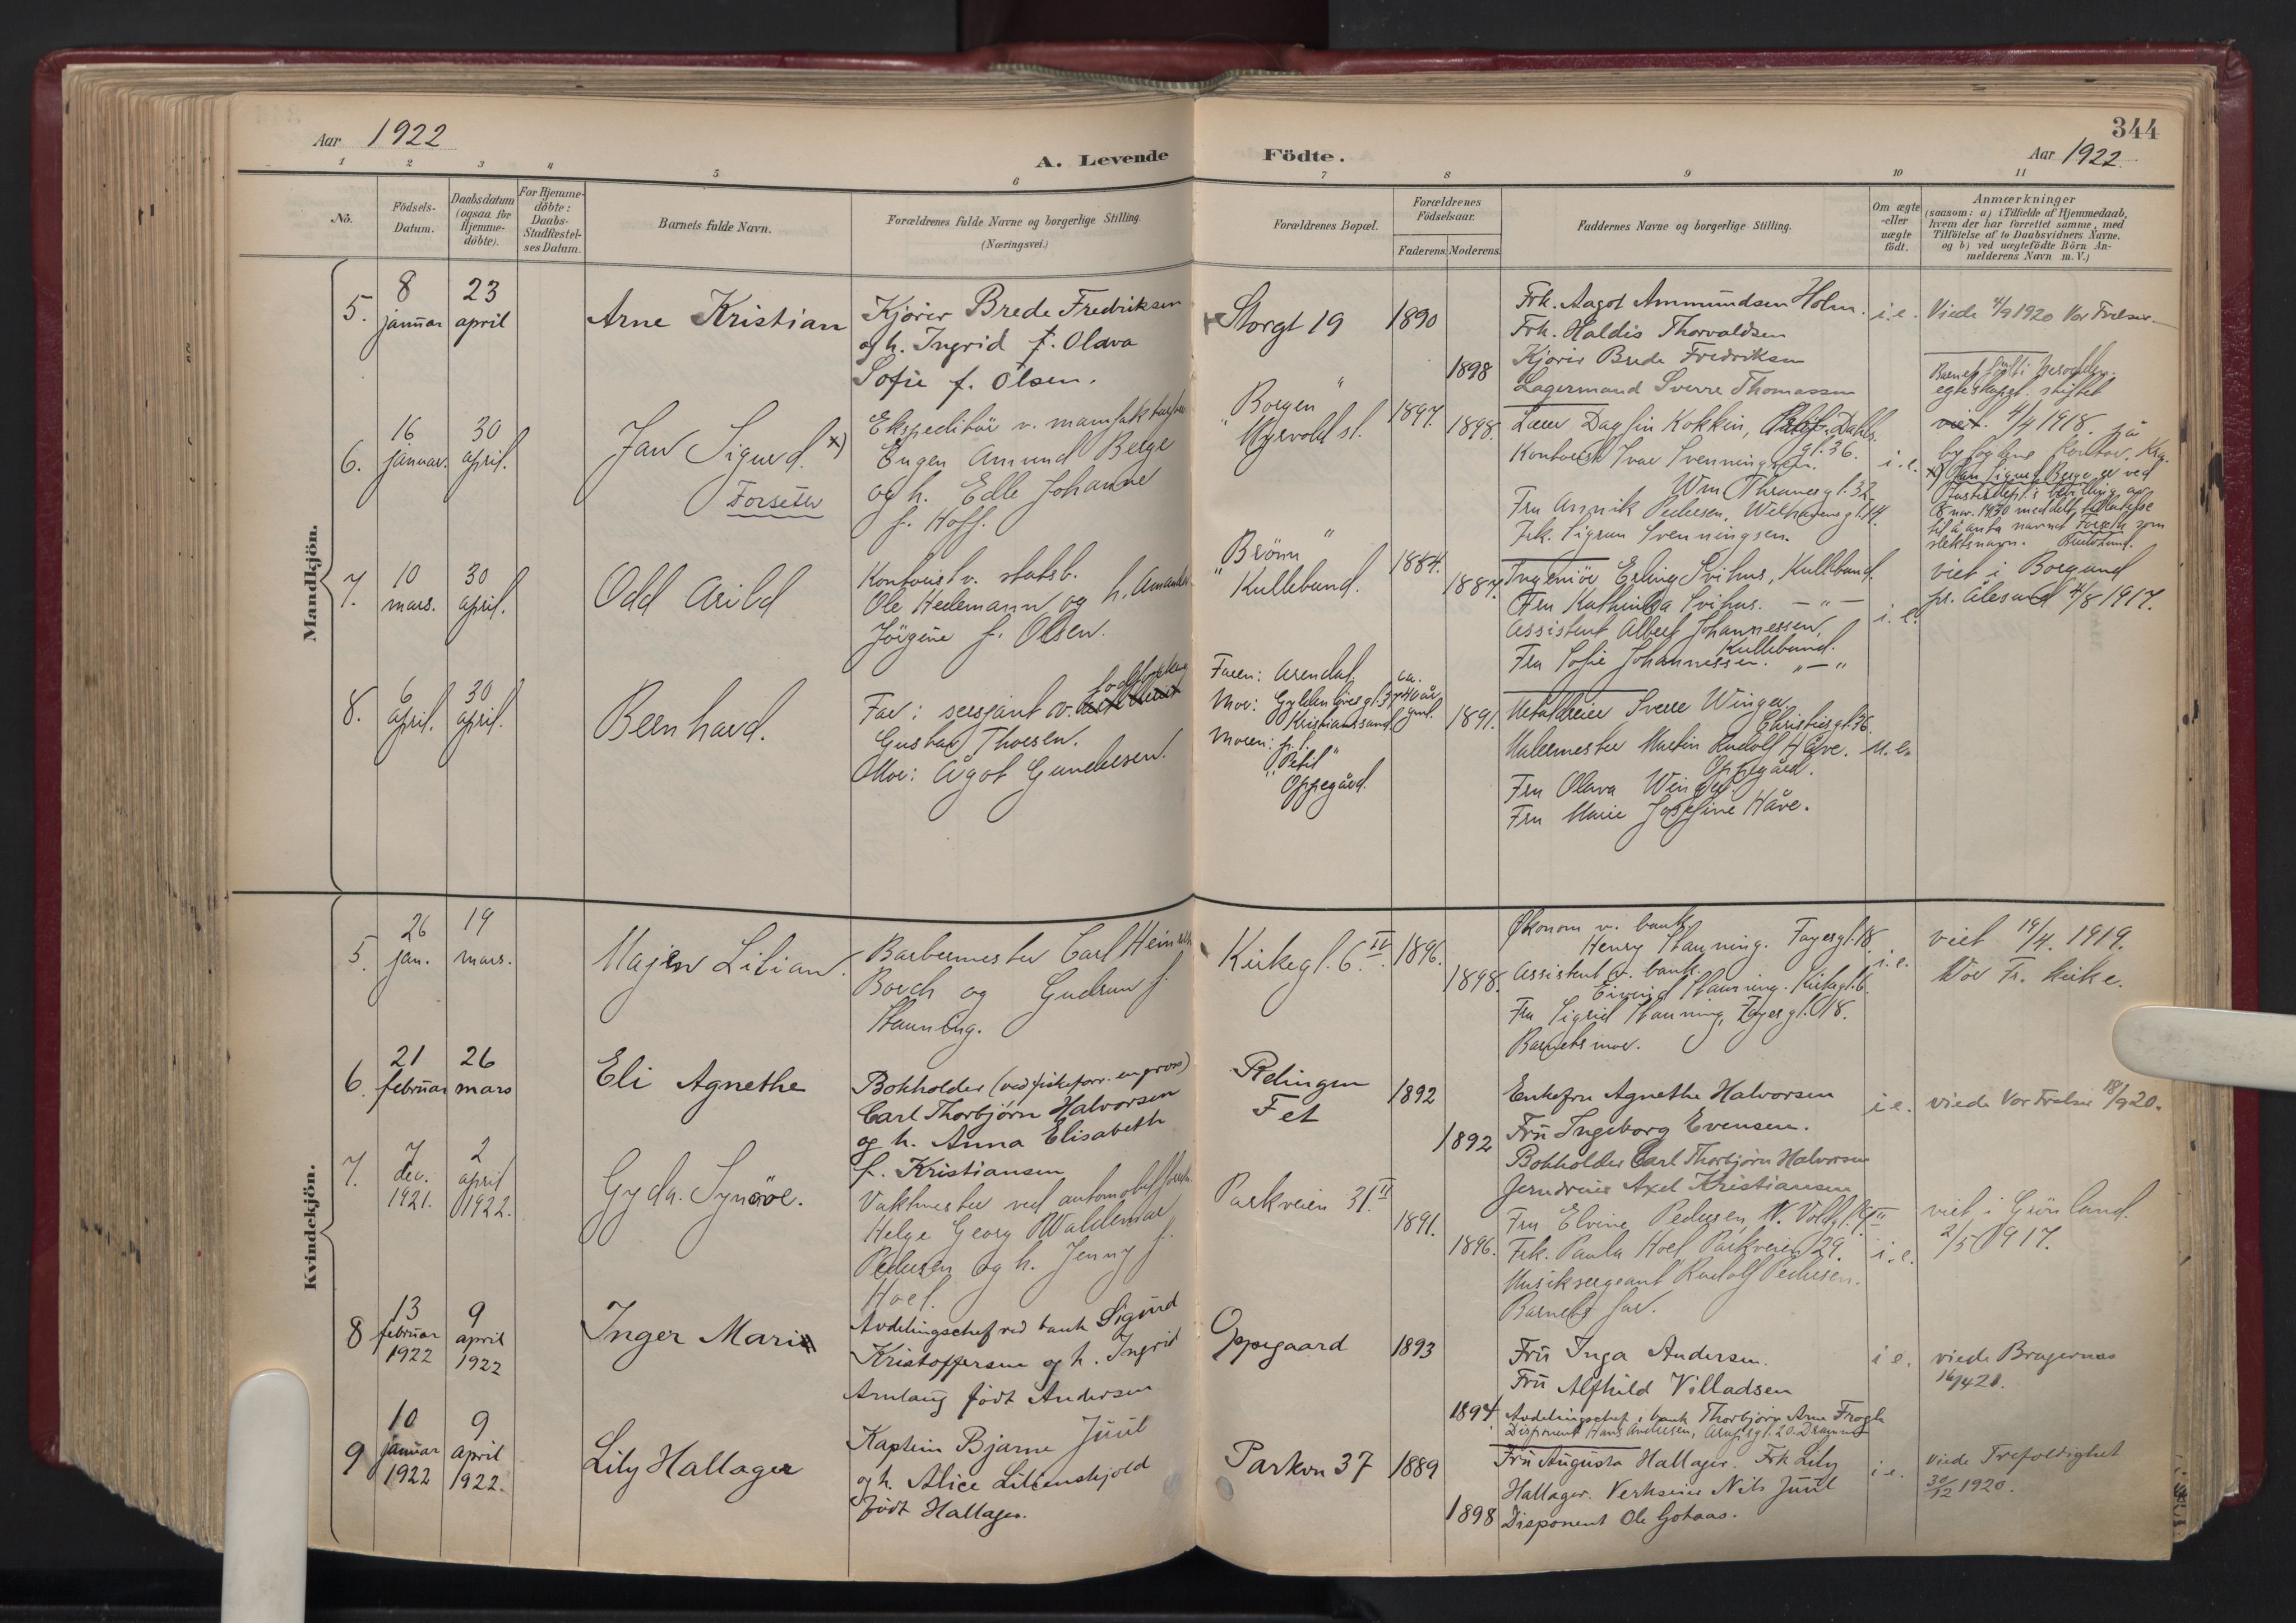 344
Aar 1922
A. Levende Födte.
Aar 1922
1 2 3 4 5 6 7 8 9 10 11
Nö.
Födsels-
Datum.
Daabsdatum
(ogsaa for
Hjemme-
döbte).
For Hjemme-
döbte:
Daabs-
Stadfestel-
ses Datum.
Barnets fulde Navn.
Forældrenes fulde Navne og borgerlige Stilling.
(Næringsvei.)
Forældrenes Bopæl.
Forældrenes
Födselsaar.
Faderens. Moderens.
Faddernes Navne og borgerlige Stilling.
Om ægte
eller
uægte
födt.
Anmærkninger
(saasom: a) i Tilfælde af Hjemmedaab,
hvem der har forrettet samme, med
Tilföielse af to Daabsvidners Navne.
og b) ved uægtefödte Börn An-
melderens Navn m. V.)
Mandkjön.
5.
8
januar
23
april
Arne Kristian
Kjører Brede Fredriksen
og h. Ingrid f. Olava
Sofie f. Olsen.
Storgt 19
1890
1898
Frk. Aagot Ammundsen Holm.
Frk. Haldis Thorvaldsen
Kjører Brede Fredriksen
Lagermand Sverre Thomassen
i.e.
Viede 4/9 1920 Vor Frelser.
6.
16
januar.
30
april.
Jan Sigurd. x)
Forseth
Ekspeditör v.
Eugen Amund Berge
og h. Edle Johanne
f. Hoff.
Borgen
Myrvold st.
1897.
1898.
Lærer Dagfin Kokkin, Dahls
gt. 36.
Kontorist Ivar Svenningsen.
Wm Thranesgt. 32
Fru Annik Pedersen, Welhavensgt. 14.
Frk. Sigrun Svenningsen.
i.e.
Barnet født i
egteskapet stiftet
viet. 4/4 1918. på
byfogdens kontor, Kra.
x) Jan Sigurd Berge er ved
Justisdept.s bevilling av
8 nov. 1930 meddelt tillatelse
til å anta navnet Forseth som
slektsnavn.
7.
10
mars.
30
april.
Odd Arild
Kontorist v. statsb.
Ole Hedemann og h. Amanda
Jörgine f. Olsen.
Brönn
Kullebund.
1884.
1887.
Ingeniör Erling Svihus, Kullebund.
Fru Kathinka Svihus. — " —
Assistent Albert Johannessen,
Kullebund.
Fru Sofie Johannessen. " — "
i.e.
viet i Borgund
pr. Ålesund 4/8 1917.
8.
6
april.
30
april.
Bernhard.
Far: sersjant v.
Gustav Thorsen.
Mor: Ågot Gundersen.
Faren: Arendal.
Mor: Gyldenlövesgt. 37
Kristiansand
Moren: p.t.
Petil
Oppegård.
ca.
40 år
gml.
1891.
Metaldreier Sverre Winger
Christiesgt. 36
Malermester Martin Rudolf Håve.
Oppegård.
Fru Olava Winger
Fru Marie Josefine Håve.
u.e.
Kvindekjön.
5.
26
jan.
19
mars.
Majen Lilian.
Barbermester Carl Heinrich
Borch og Gudrun f.
Stauning.
Kirkegt. 6 IV.
1896.
1898.
Økonom v. bank.
Henry Stauning. Fayesgt. 18.
Assistent v. bank.
Eivind Stauning. Kirkegt. 6.
Fru Sigrid Stauning, Fayesgt. 18.
Barnets mor.
i.e.
viet 19/4. 1919.
Vor Fr. kirke.
6.
21
februar
26
mars
Eli Agnethe
Bokholder (ved fiskeforr. en gros)
Carl Thorbjørn Halvorsen
og h. Anna Elisabeth
f. Kristiansen
Relingen
Fet
1892
1892
Enkefru Agnethe Halvorsen
Fru Ingeborg Evensen.
Bokholder Carl Thorbjørn Halvorsen
Jerndreier Axel Kristiansen
i e.
viede Vor Frelser 18/9 20.
7.
7
dec.
1921.
2
april
1922.
Gyda. Synöve.
Vaktmester ved
Helge Georg Waldemar
Pedersen og h. Jenny f.
Hoel.
Parkveien 31. II
1891.
1896.
Fru Elvine Pedersen, N. Voldgt.
Frk. Paula Hoel, Parkveien 29.
Musiksergeant Rudolf Pedersen.
Barnets far.
i.e.
viet i Grönland.
2/5 1917.
8
13
februar
1922
9
april
1922
Inger Marie
Avdelingschef ved bank Sigurd
Kristoffersen og h. Ingrid
Arnlaug født Andersen
Oppegaard
1893
1897
Fru Inga Andersen.
Fru Alfhild Villadsen
Avdelingschef i bank Thorbjørn Arne Frogh
Disponent Hans Andersen, 20. Drammen
i e.
viede Bragernes
16/4 21.
9
10
januar
1922
9
april
1922.
Lily Hallager
Kaptein Bjarne Juul
og h. Alice Lilienskjold
født Hallager.
Parkvn 37
1889
1898
Fru Augusta Hallager. Frk Lily
Hallager. Verkseier Nils Juul
Disponent Ole Gotaas.
i e.
viede Trefoldighet
30/12 1920.